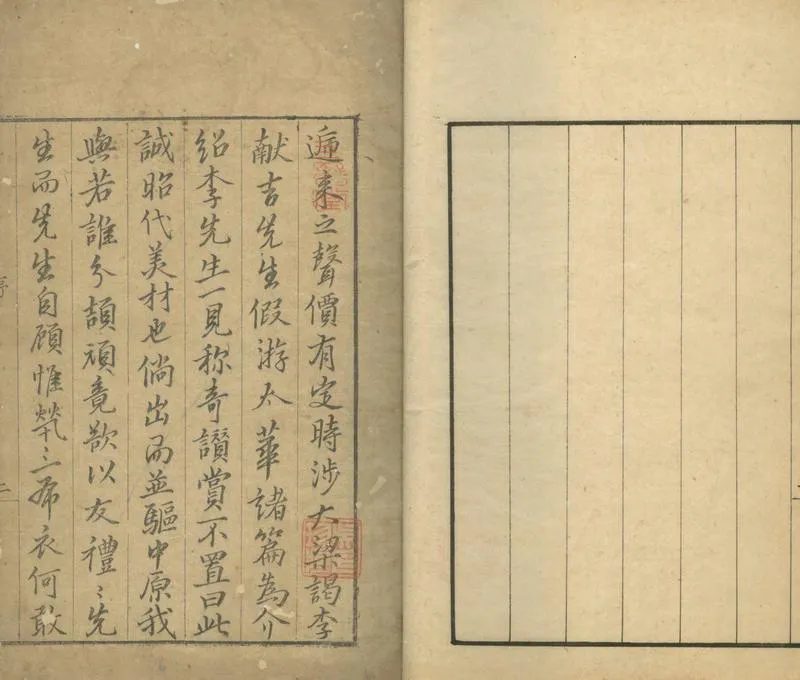 遍來之聲價有定時涉大梁謁李
献吉先生假游太華諸篇為介
紹李先生一見称奇讃賞不置曰此
誠昭代美材也倘出而並驅中原我
與若誰分頡頏竟欲以友禮〻先
生而先生自顧惟煢〻一布衣何敢
序
二